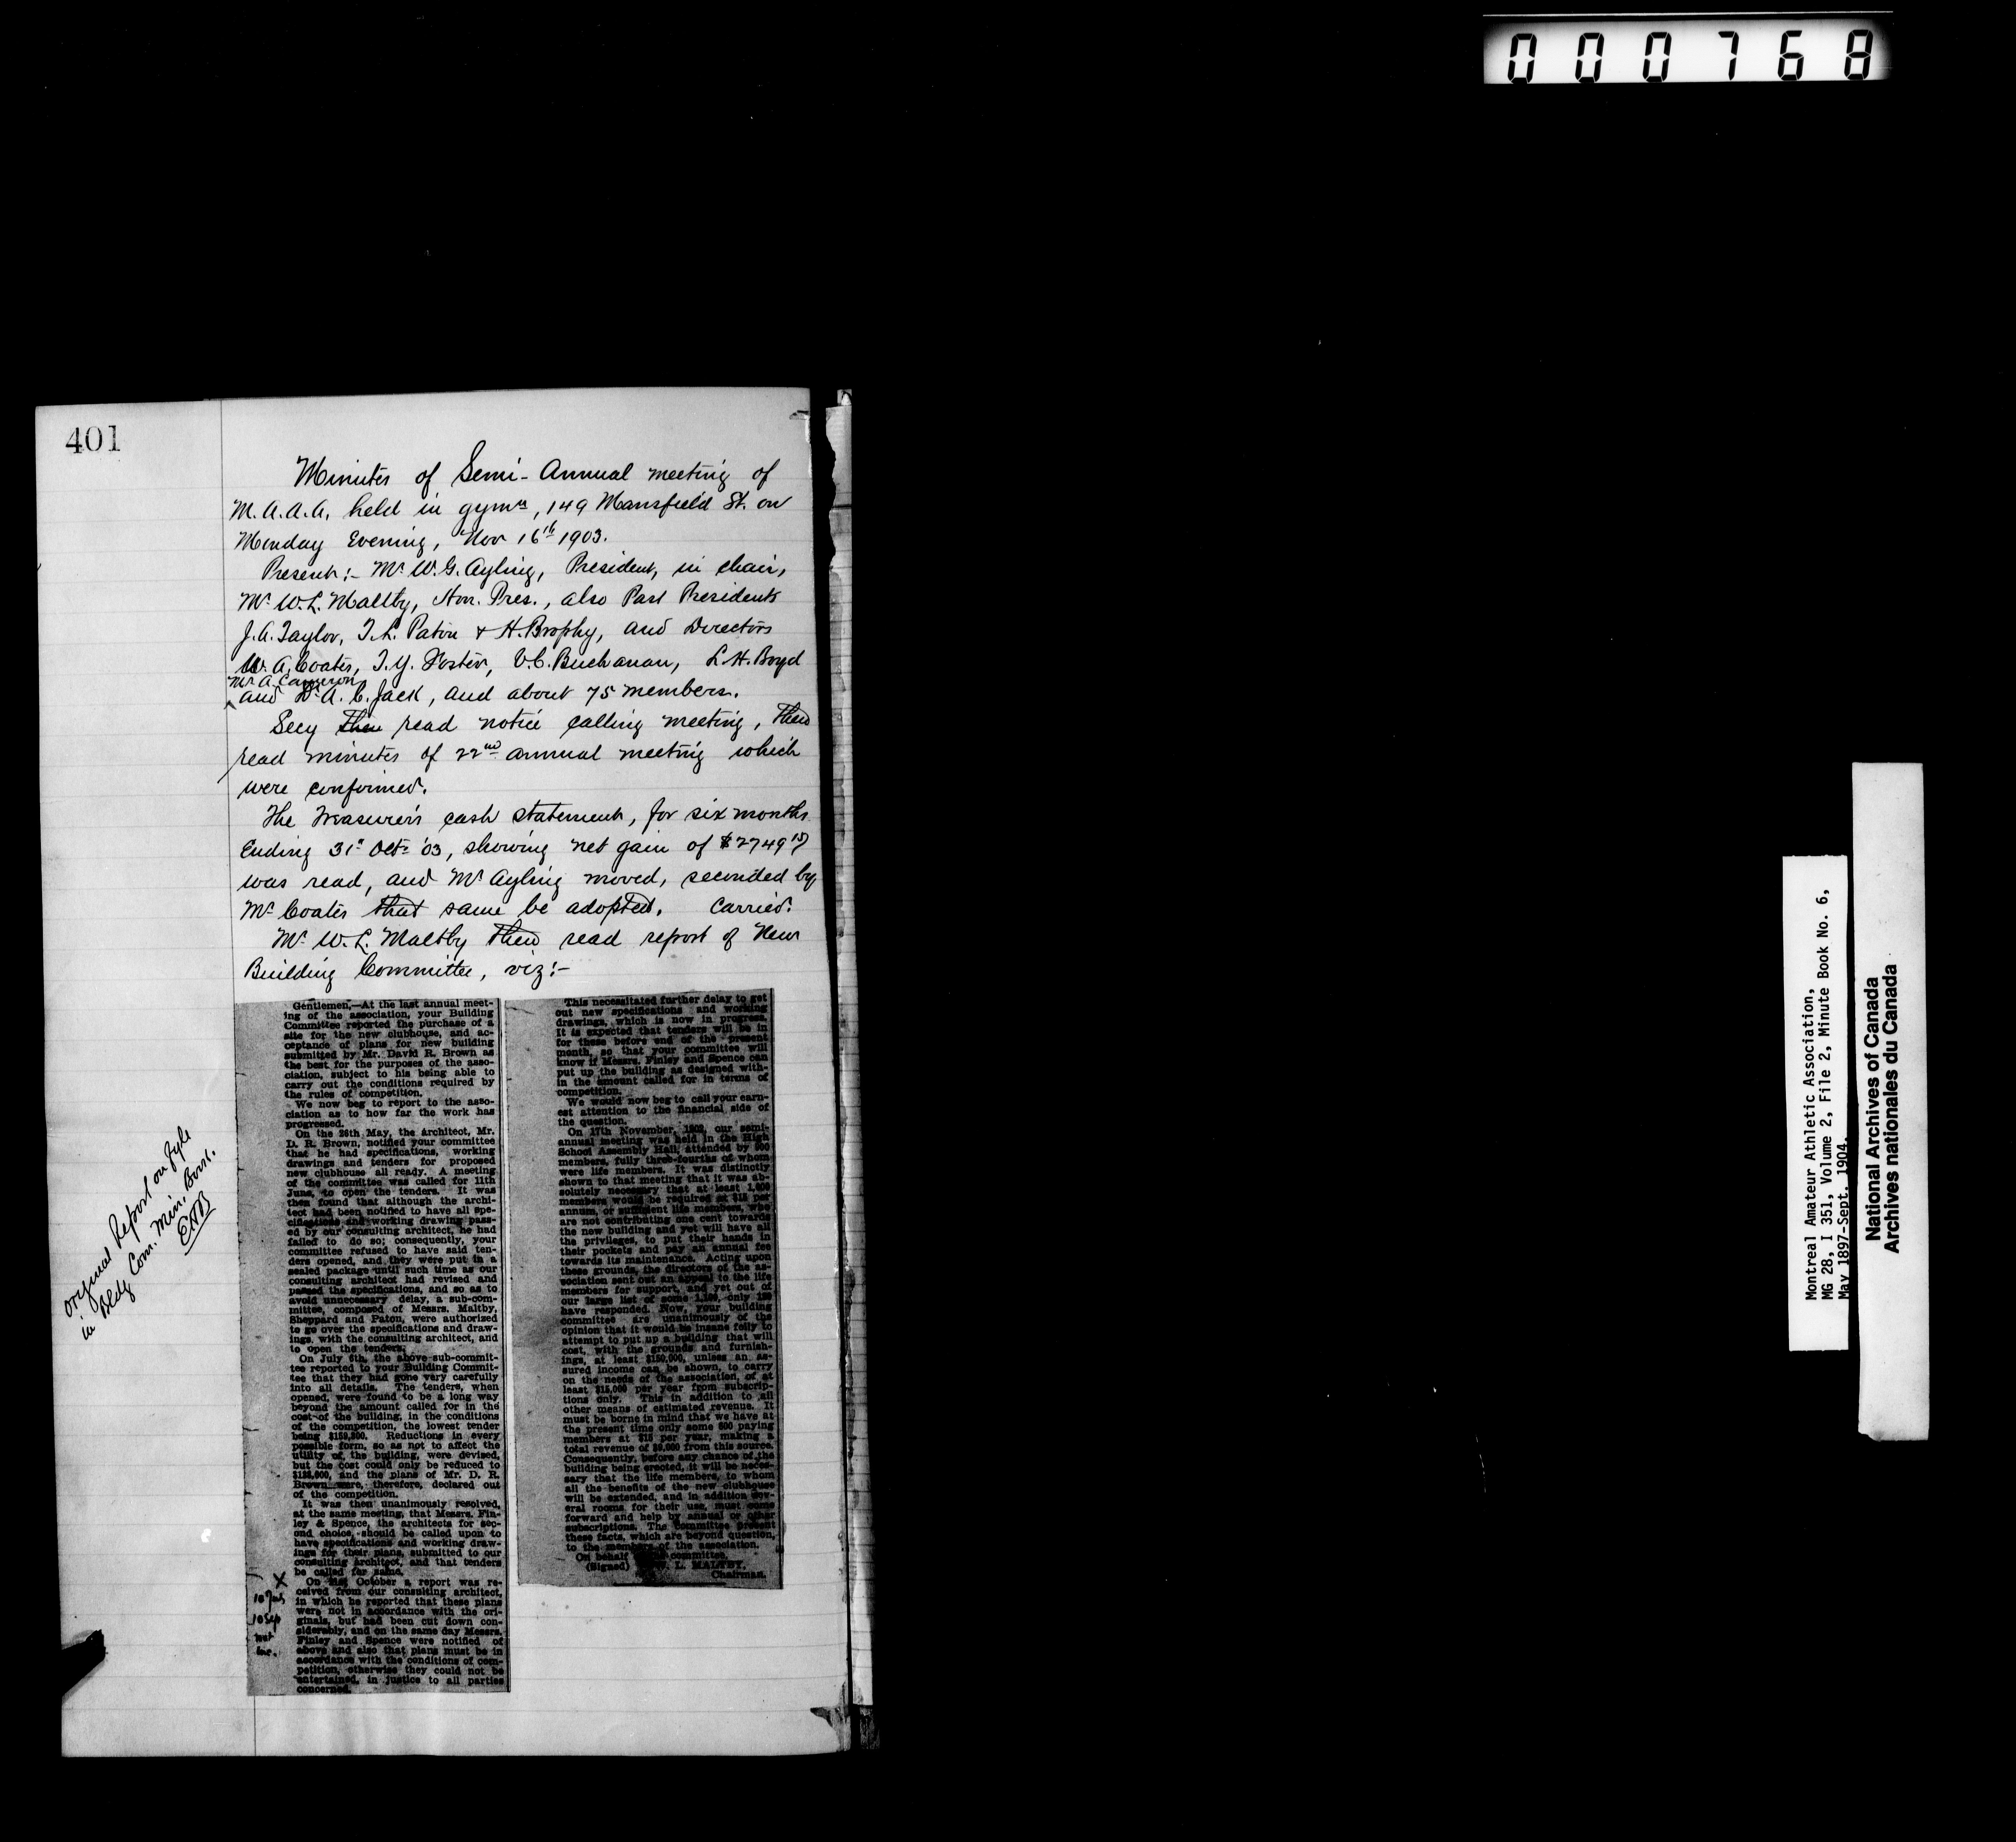 000768
401
Minutes of Semi-Annual meeting of
M.A.A.A. held in gymn, 149 Mansfield St. on
Monday Evening, Nov 16th 1903.
Present:- Mr W.G. Ayling, President, in chair,
Mr W.L. Maltby, Hon. Pres., also Past Presidents
J.A. Taylor, T.L. Paton & H. Brophy, and Directors
W.A. Coates, T.Y. Foster, V.C. Buchanan, L.H. Boyd
Mr A. Cameron
and Dr A.C. Jack, and about 75 members.
Secy then read notice calling meeting, then
read minutes of 22nd annual meeting which
were confirmed.
The Treasurer's cash statement, for six months
Ending 31st Oct '03, showing net gain of $2749
was read, and Mr Ayling moved, seconded by
Mr Coates that same be adopted. Carried.
Mr W.L. Maltby then read report of New
Building Committee, viz:-
Original Report on fyle
in Bldg Com. Min. Book.
Gentlemen,—At the last annual meet-
ing of the association, your Building
Committee reported the purchase of a
site for the new clubhouse, and ac-
ceptance of plans for new building
submitted by Mr. David R. Brown as
the best for the purposes of the asso-
ciation, subject to his being able to
carry out the conditions required by
the rules of competition.
We now beg to report to the asso-
ciation as to how far the work has
progressed.
On the 26th May, the Architect, Mr.
D. R. Brown, notified your committee
that he had specifications, working
drawings and tenders for proposed
new clubhouse all ready. A meeting
of the committee was called for 11th
June, to open the tenders. It was
then found that although the archi-
tect had been notified to have all spe-
cifications and working drawing pass-
ed by our consulting architect, he had
failed to do so; consequently, your
committee refused to have said ten-
ders opened, and they were put in a
sealed package until such time as our
consulting architect had revised and
passed the specifications, and so as to
avoid unnecessary delay, a sub-com-
mittee, composed of Messrs. Maltby,
Sheppard and Paton, were authorized
to go over the specifications and draw-
ings, with the consulting architect, and
to open the tenders.
On July 6th, the above sub-commit-
tee reported to your Building Commit-
tee that they had gone very carefully
into all details. The tenders, when
opened, were found to be a long way
beyond the amount called for in the
cost of the building, in the conditions
of the competition, the lowest tender
being Reductions in every
possible form, so as not to affect the
utility of the building, were devised,
but the cost could only be reduced to
and the plans of Mr. D. R.
Brown were, therefore, declared out
of the competition.
It was then unanimously resolved,
at the same meeting, that Messrs. Fin-
ley & Spence, the architects for sec-
ond choice, should be called upon to
have specifications and working draw-
ings for their plans, submitted to our
consulting architect, and that tenders
be called for same.
X
On October a report was re-
ceived from our consulting architect,
in which he reported that these plans
were not in accordance with the ori-
ginals, but had been cut down con-
siderably, and on the same day Messrs.
Finley and Spence were notified of
above and also that plans must be in
accordance with the conditions of com-
petition, otherwise they could not be
entertained, in justice to all parties
concerned.
This necessitated further delay to get
out new specifications and working
drawings, which is now in progress.
It is expected that tenders will be in
for these before end of the present
month, so that your committee will
know if Messrs. Finley and Spence can
put up the building as designed with-
in the amount called for in terms of
competition.
We would now beg to call your earn-
est attention to the financial side of
the question.
On 17th November, 1902, our semi-
annual meeting was held in the High
School Assembly Hall, attended by
members, fully three-fourths of whom
were life members. It was distinctly
shown to that meeting that it was ab-
solutely necessary that at least
members would be required at $15 per
annum, or sufficient life members, who
are not contributing one cent towards
the new building and yet will have all
the privileges, to put their hands in
their pockets and pay an annual fee
towards its maintenance. Acting upon
these grounds, the directors of the as-
sociation sent out an appeal to the life
members for support, and yet out of
our large list of some only
have responded. Now, your building
committee are unanimously of the
opinion that it would be insane folly to
attempt to put up a building that will
cost, with the grounds and furnish-
ings, at least $150,000, unless an as-
sured income can be shown, to carry
on the needs of the association, of at
least $15,000 per year from subscrip-
tions only. This in addition to all
other means of estimated revenue. It
must be borne in mind that we have at
the present time only some 600 paying
members at $15 per year, making a
total revenue of $9,000 from this source.
Consequently, before any chance of the
building being erected, it will be neces-
sary that the life members, to whom
all the benefits of the new clubhouse
will be extended, and in addition sev-
eral rooms for their use, must come
forward and help by annual or other
subscriptions. The committee present
these facts, which are beyond question,
to the members of the association.
On behalf committee,
(Signed) W. L. MALTBY,
Chairman.
Montreal Amateur Athletic Association,
MG 28, I 351, Volume 2, File 2, Minute Book No. 6,
May 1897-Sept. 1904.
National Archives of Canada
Archives nationales du Canada